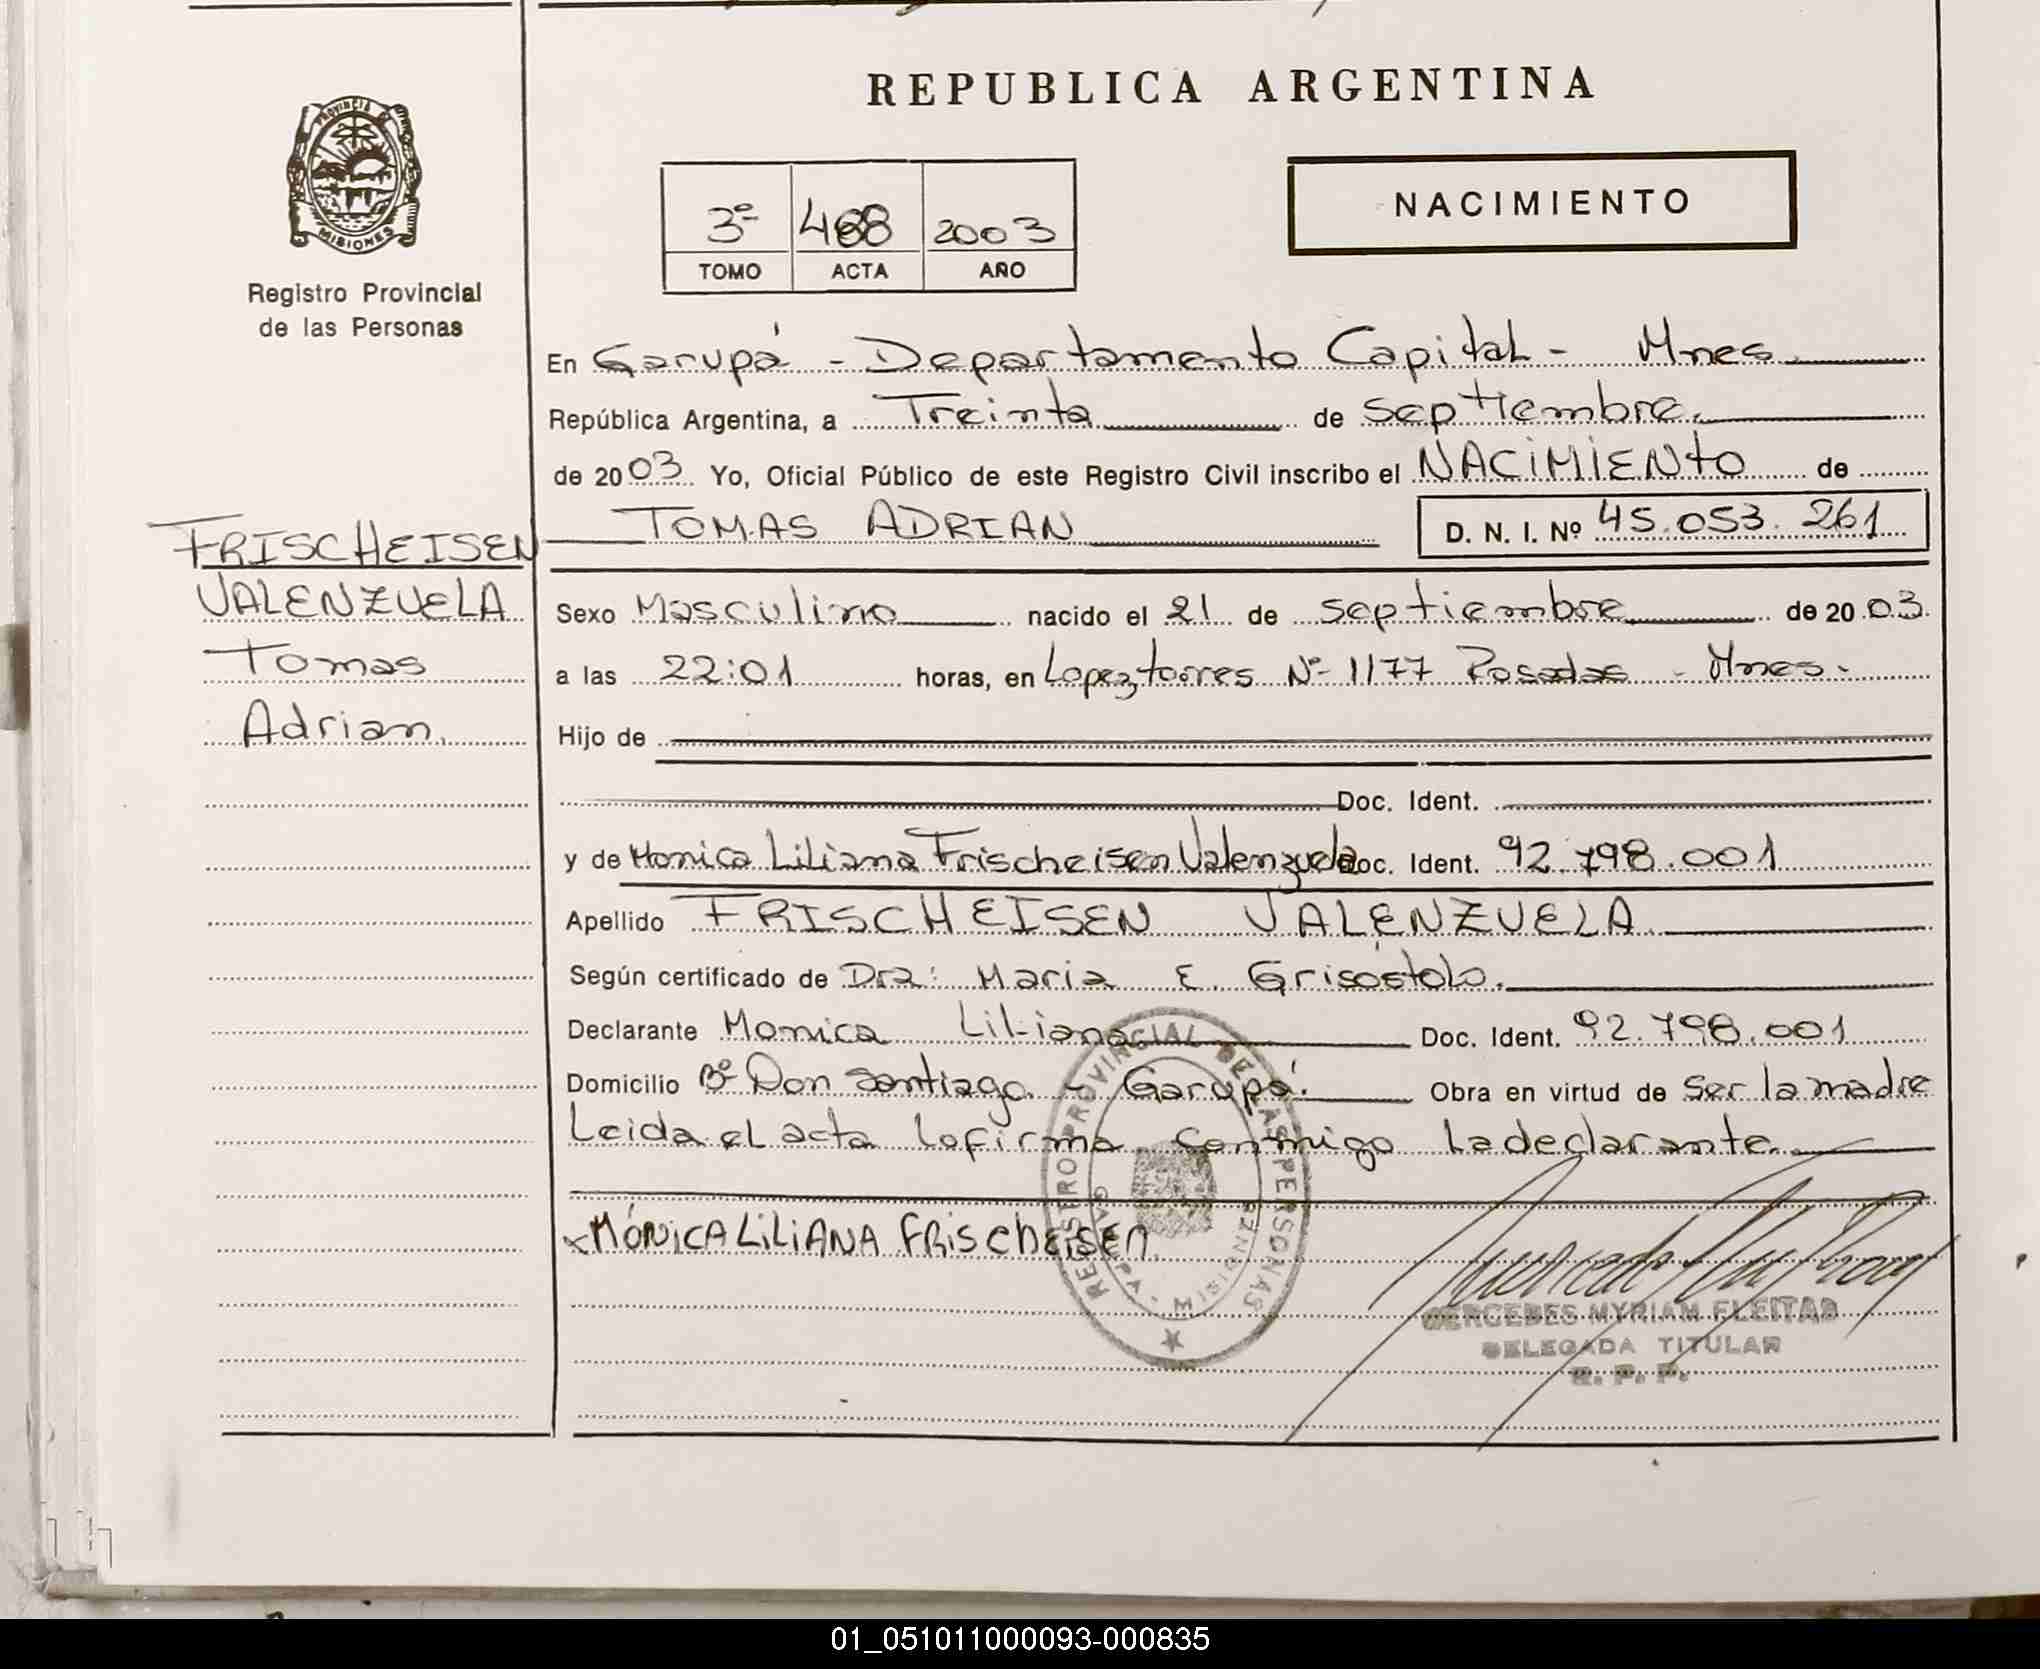 REPUBLICA ARGENTINA
PROVINCIA DE
MISIONES
Registro Provincial
de las Personas
3º 468 2003
TOMO ACTA AÑO
NACIMIENTO
En Garupá - Departamento Capital - Mnes.
República Argentina, a Treinta de Septiembre.
de 2003. Yo, Oficial Público de este Registro Civil inscribo el NACIMIENTO de
TOMAS ADRIAN D. N. I. Nº 45.053.261
FRISCHEISEN
VALENZUELA
Tomas
Adrian.
Sexo Masculino nacido el 21 de Septiembre de 2003.
a las 22:01 horas, en Lopez torres Nº 1177 Posadas - Mnes-
Hijo de
Doc. Ident.
y de Monica Liliana Frischeisen Valenzuela Doc. Ident. 92.798.001
Apellido FRISCHEISEN VALENZUELA.
Según certificado de Dra: Maria E. Grisóstolo.
Declarante Monica Liliana Doc. Ident. 92.798.001
Domicilio Bº Don Santiago - Garupá. Obra en virtud de Ser la madre
Leida el acta la firma conmigo la declarante.
x MÓNICA LILIANA FRISCHEISEN.
REGISTRO PROVINCIAL DE LAS PERSONAS
MERCEDES MYRIAM FLEITAS
DELEGADA TITULAR
R. P. P.
01_051011000093-000835